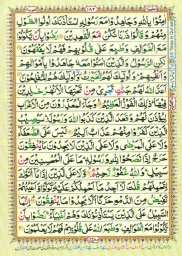 اٰمِنُوْا بِاللّٰهِ وَجَاهِدُوْا مَعَ رَسُوْلِهِ اسْتَاْذَنَكَ اُولُوا الطَّوْلِ
مِنْهُمْ وَقَالُوْا ذَرْنَا نَكُنْ مَّعَ الْقٰعِدِيْنَ رَضُوْا بِاَنْ يَّكُوْنُوْا
مَعَ الْخَوَالِفِ وَطُبِعَ عَلٰى قُلُوْبِهِمْ فَهُمْ لَا يَفْقَهُوْنَ
لٰكِنِ الرَّسُوْلُ وَالَّذِيْنَ اٰمَنُوْا مَعَهٗ جَاهَدُوْا بِاَمْوَالِهِمْ
وَاَنْفُسِهِمْ وَاُولٰٓئِكَ لَهُمُ الْخَيْرٰتُ وَاُولٰٓئِكَ هُمُ الْمُفْلِحُوْنَ
اَعَدَّ اللّٰهُ لَهُمْ جَنّٰتٍ تَجْرِيْ مِنْ تَحْتِهَا الْاَنْهٰرُ خٰلِدِيْنَ
فِيْهَا ذٰلِكَ الْفَوْزُ الْعَظِيْمُ وَجَآءَ الْمُعَذِّرُوْنَ مِنَ الْاَعْرَابِ
لِيُؤْذَنَ لَهُمْ وَقَعَدَ الَّذِيْنَ كَذَبُوا اللّٰهَ وَرَسُوْلَهٗ سَيُصِيْبُ
الَّذِيْنَ كَفَرُوْا مِنْهُمْ عَذَابٌ اَلِيْمٌ لَيْسَ عَلَى الضُّعَفَآءِ وَلَا
عَلَى الْمَرْضٰى وَلَا عَلَى الَّذِيْنَ لَا يَجِدُوْنَ مَا يُنْفِقُوْنَ
حَرَجٌ اِذَا نَصَحُوْا لِلّٰهِ وَرَسُوْلِهٖ مَا عَلَى الْمُحْسِنِيْنَ مِنْ
سَبِيْلٍ وَاللّٰهُ غَفُوْرٌ رَّحِيْمٌ وَّلَا عَلَى الَّذِيْنَ اِذَا مَآ اَتَوْكَ
لِتَحْمِلَهُمْ قُلْتَ لَآ اَجِدُ مَآ اَحْمِلُكُمْ عَلَيْهِ تَوَلَّوْا وَّاَعْيُنُهُمْ
تَفِيْضُ مِنَ الدَّمْعِ حَزَنًا اَلَّا يَجِدُوْا مَا يُنْفِقُوْنَ اِنَّمَا
السَّبِيْلُ عَلَى الَّذِيْنَ يَسْتَاْذِنُوْنَكَ وَهُمْ اَغْنِيَآءُ رَضُوْا بِاَنْ
يَّكُوْنُوْا مَعَ الْخَوَالِفِ وَطَبَعَ اللّٰهُ عَلٰى قُلُوْبِهِمْ فَهُمْ لَا يَعْلَمُوْنَ